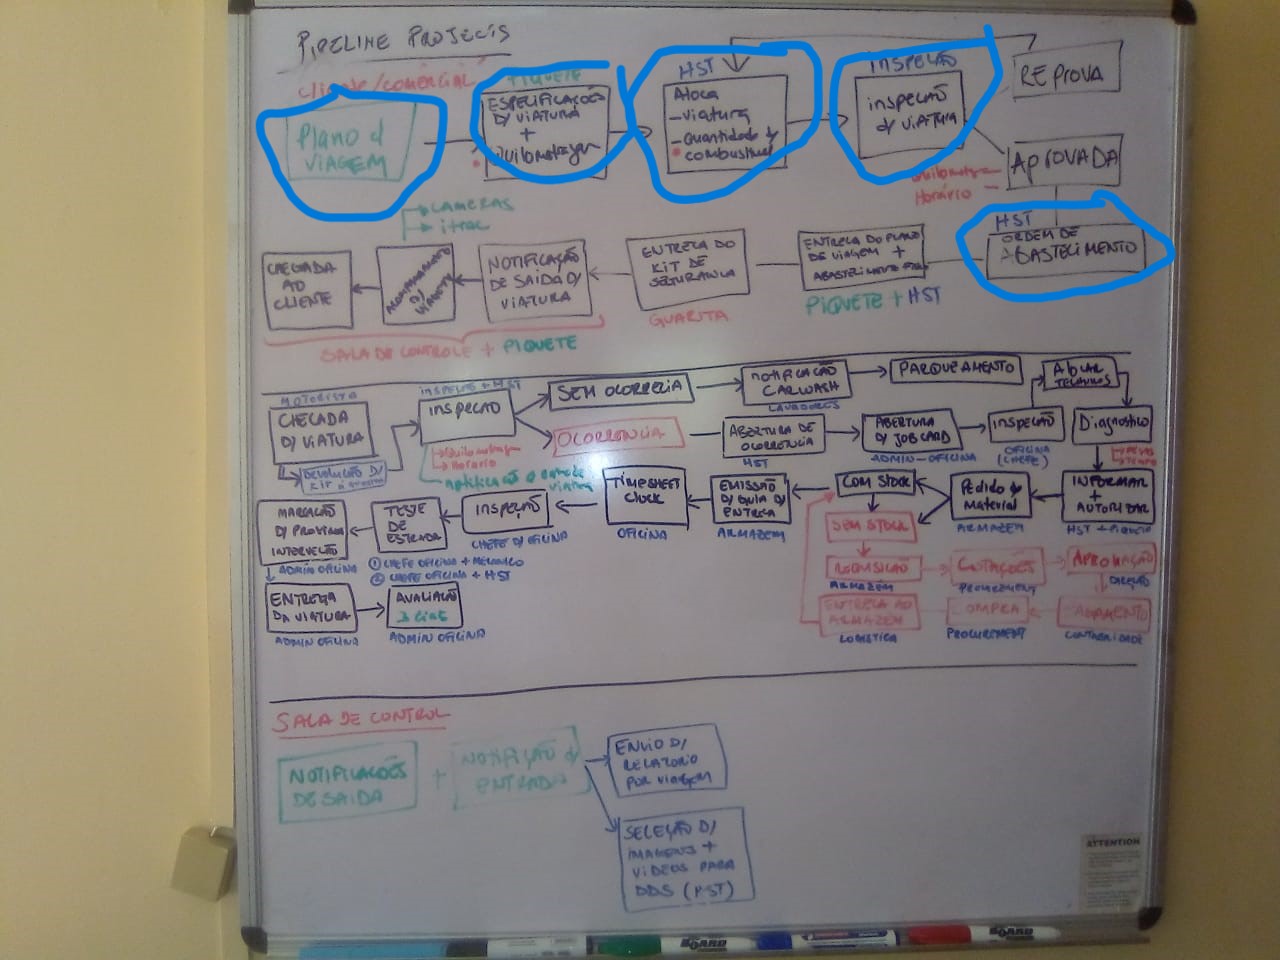 PIPELINE PROJECTS
CLIENTE/COMERCIAL
Plano d/
VIAGEM
PIQUETE
ESPECIFICAÇÕES
D/ VIATURA
+
Quilometragem
HST
Aloca
- Viatura
- Quantidade d/
combustivel
INSPEÇÃO
INSPEÇÃO
d/ VIATURA
REPROVA
APROVADA
Quilometragem
Horário
HST
ORDEM DE
ABASTECIMENTO
ENTREGA DO PLANO
DE VIAGEM +
ABASTECIMENTO
PIQUETE + HST
ENTREGA DO
KIT DE
SEGURANÇA
GUARITA
NOTIFICAÇÃO
DE SAIDA D/
VIATURA
CAMERAS
itrac
D/
CHEGADA
AO
CLIENTE
SALA DE CONTROLE + PIQUETE
MOTORISTA
CHEGADA
D/ VIATURA
DEVOLUÇÃO D/
KIT
INSPEÇÃO + HST
INSPEÇÃO
Quilometragem
Horário
NOTIFICAÇÃO
viatura
SEM OCORRECIA
NOTIFICAÇÃO
CARWASH
LAVADORES
PARQUEAMENTO
OCORRENCIA
ABERTURA DE
OCORRENCIA
HST
ABERTURA
D/ JOBCARD
ADMIN-OFICINA
INSPEÇÃO
OFICINA
(CHEFE)
TECNICOS
Diagnostico
INFORMAR
+
AUTORIZAR
HST + PIQUETE
Pedido d/
Material
ARMAZEM
COM STOCK
SEM STOCK
REQUISIÇÃO
ARMAZEM
COTAÇÕES
PROCUREMENT
APROVAÇÃO
DIREÇÃO
PAGAMENTO
CONTABILIDADE
COMPRA
PROCUREMENT
ENTREGA AO
ARMAZEM
LOGISTICA
EMISSÃO
D/ GUIA D/
ENTREGA
ARMAZEM
TIMESHEET
CLOCK
OFICINA
INSPEÇÃO
CHEFE D/ OFICINA
TESTE
DE
ESTRADA
① CHEFE OFICINA + MECANICO
② CHEFE OFICINA + HST
MARCAÇÃO
D/ PROXIMA
INTERVEÇÃO
ADMIN OFICINA
ENTREGA
DA VIATURA
ADMIN OFICINA
AVALIAÇÃO
3 dias
ADMIN OFICINA
SALA DE CONTROL
NOTIFICAÇÕES
DE SAIDA
+
NOTIFIÇÃO d/
ENTRADA
ENVIO D/
RELATORIO
POR VIAGEM
SELEÇÃO D/
IMAGENS +
VIDEOS PARA
DDS (HST)
ATTENTION
BOARD
BOARD